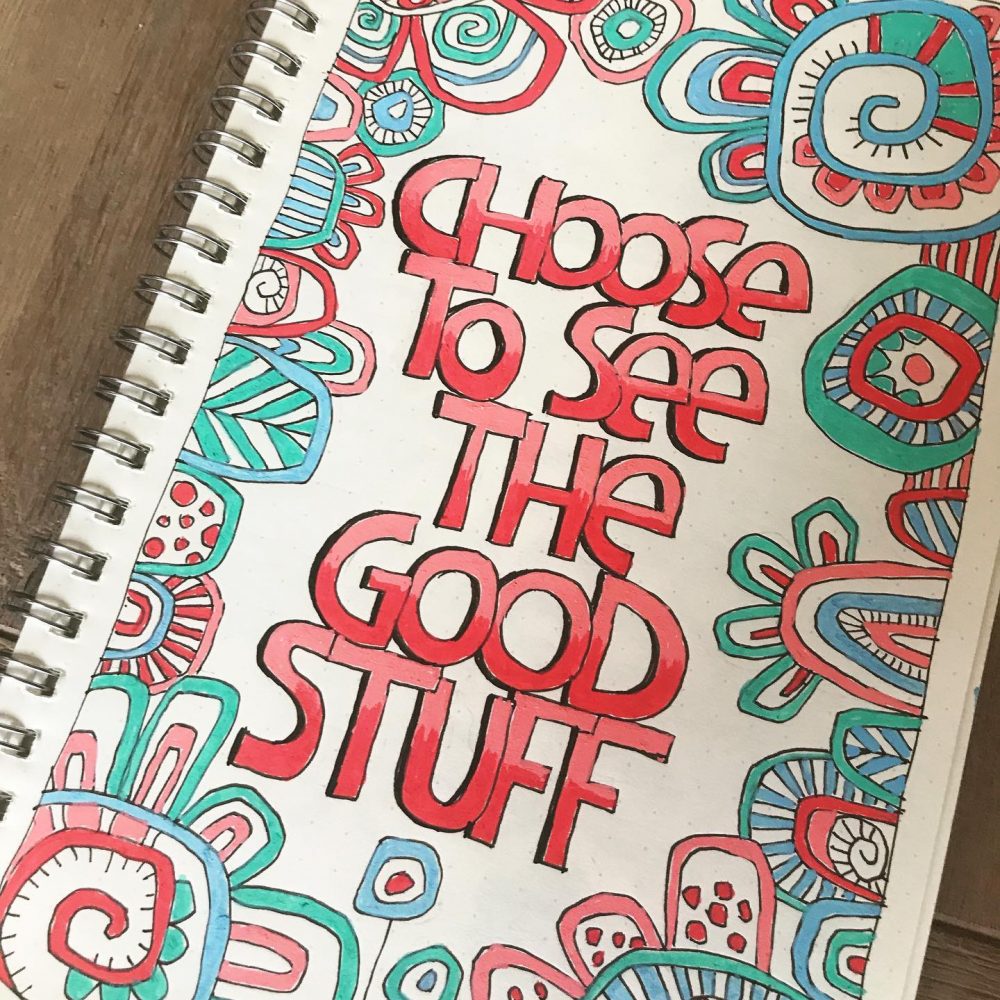 CHOOSe
To See
THe
GOOD
STUFF